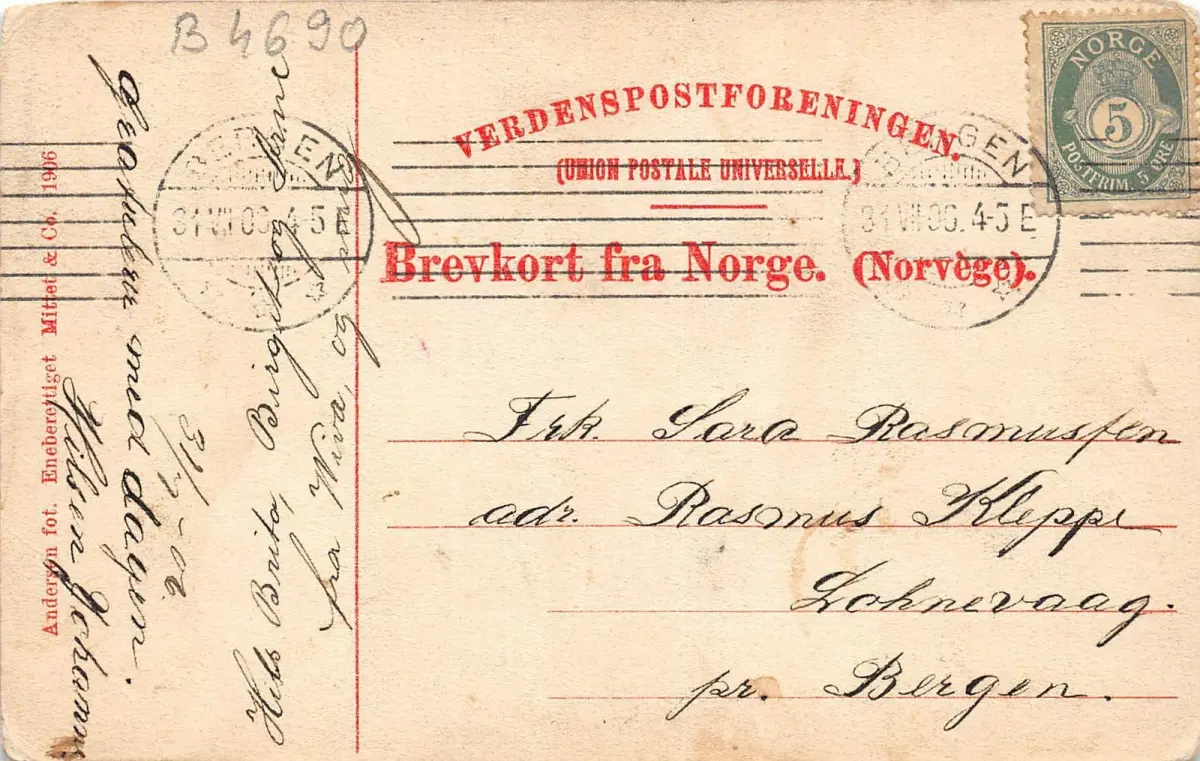 B 4690
VERDENSPOSTFORENINGEN.
(UNION POSTALE UNIVERSELLE.)
Brevkort fra Norge. (Norvège).
NORGE
5
POSTFRIM. 5 ØRE
BERGEN
31 VII 06. 4-5 E
BERGEN
31 VII 06. 4-5 E
Frk. Sara Rasmussen
adr. Rasmus Kleppe
Lohnevaag.
pr. Bergen.
Anderson fot. Eneberettiget Mittet & Co. 1906
Gratulerer med dagen.
Hilsen Johanna
31/7 - 06
Hils Brita, Birgit og Arne
fra Wiva, og